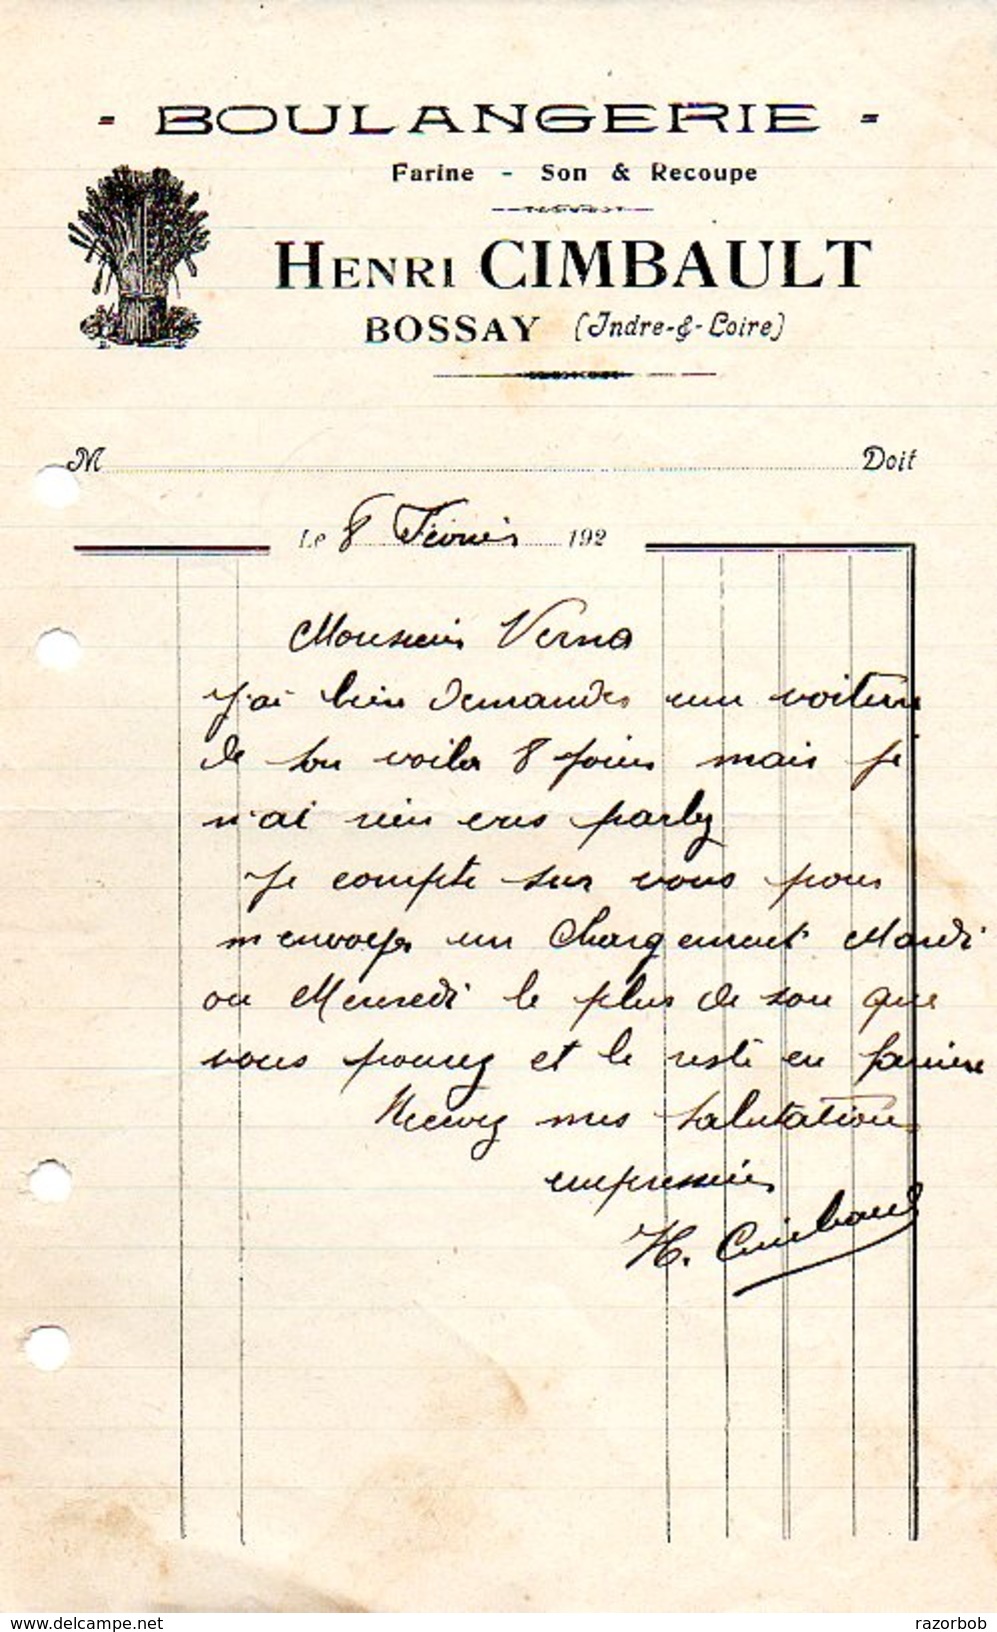 - BOULANGERIE -
Farine - Son & Recoupe
HENRI CIMBAULT
BOSSAY (Indre-&-Loire)
M Doit
Le 8 Février 192
Monsieur Verna
J'ai bien demandes une voiture
de son voila 8 jours mais je
n'ai rien
Je compte sur vous pour
m envoyer un Chargement Mardi
ou Mercredi le plus de son que
vous pourez et le reste en farine
Recevez mes salutations
empressées
H. Cimbault
www.delcampe.net
razorbob